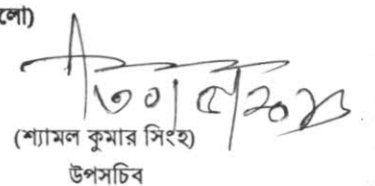 লো)
(শ্যামল কুমার সিংহ)
উপসচিব